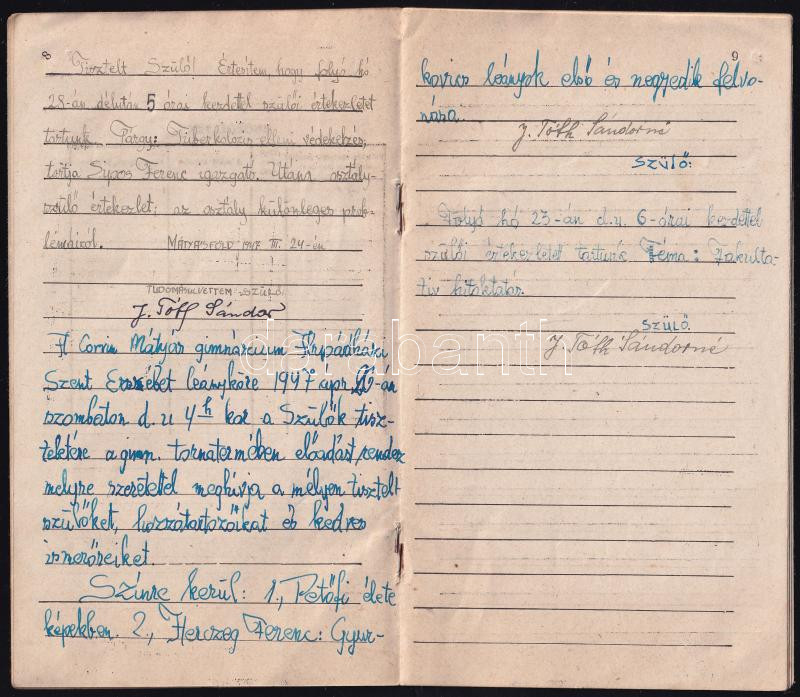 8
Tisztelt Szülő! Értesítem, hogy folyó hó
28-án délután 5 órai kezdettel szülői értekezletet
tartunk. Tárgy: Tüberkolózis elleni védekezés,
tartja Sipos Ferenc igazgató. Utána osztály-
szülő értekezlet; az osztály különleges prob-
lémáiról. MÁTYÁSFÖLD 1947 III. 24-én
TUDOMÁSULVETTEM SZÜLŐ
J. Tóth Sándor
A Corvin Mátyás gimnázium Árpádházi
Szent Erzsébet leányköre 1947 ápr. -án
szombaton d.u 4h kor a Szülők tisz-
teletére a gimn. tornatermében előadást rendez
melyre szeretettel meghívja a mélyen tisztelt
szülőket, hozzátartozóikat és kedves
ismerőseiket.
Színre kerül: 1., Petőfi élete
képekben. 2., Herczeg Ferenc: Gyur-
9
kovics leányok első és negyedik felvo-
nása.
J. Tóth Sándorné
SZÜLŐ:
Folyó hó 23-án d.u. 6-órai kezdettel
szülői értekezletet tartunk. Téma: Fakulta-
tív hitoktatás.
SZÜLŐ.
J. Tóth Sándorné
darabanth